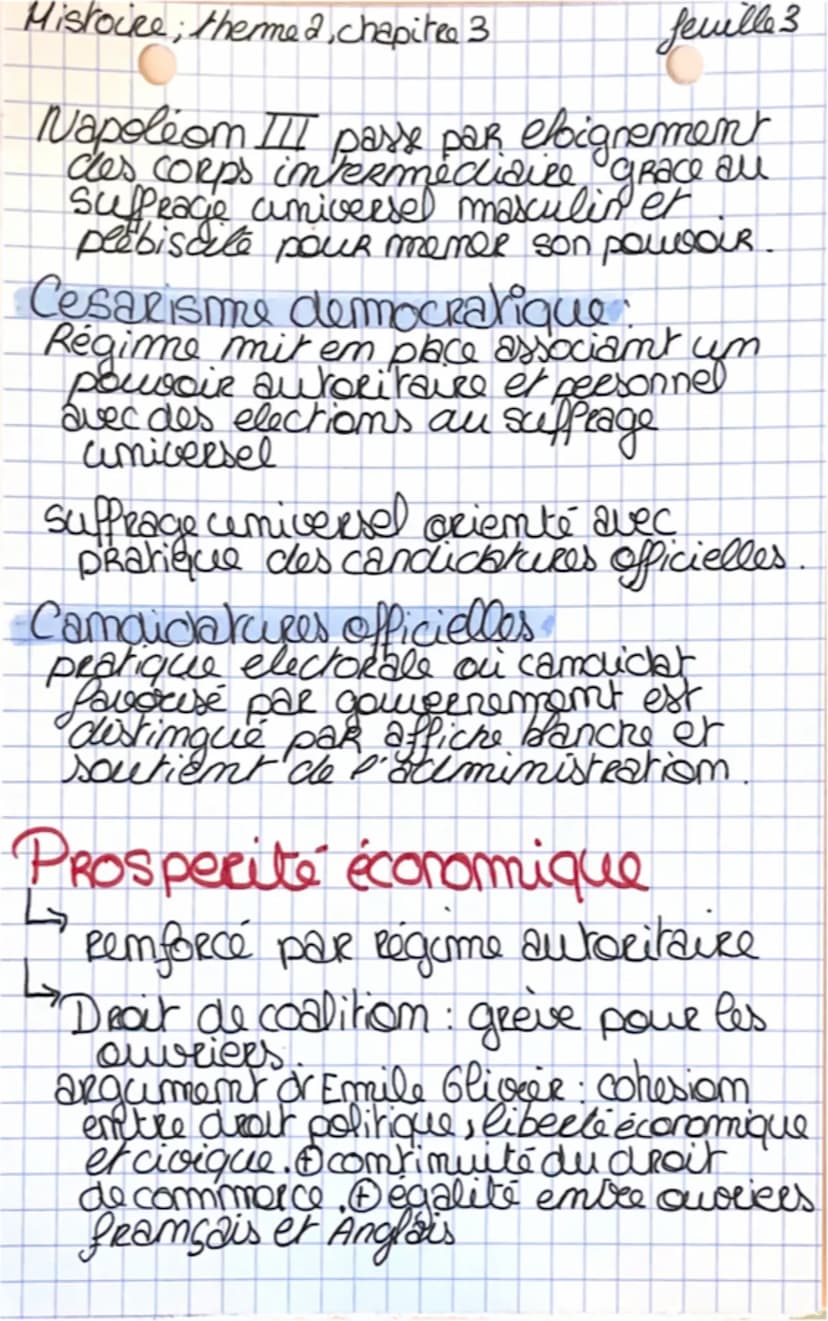 Histoire ; theme 2, chapitre 3 feuille 3
Napoléon III passe par eloignement
des corps intermédiaire grace au
suffrage universel masculin et
plébiscite pour mener son pouvoir.
Cesarisme democratique :
Régime mit en place associant un
pouvoir autoritaire et personnel
avec des elections au suffrage
universel
suffrage universel orienté avec
pratique des candidatures officielles.
Candidatures officielles
pratique electorale où candidat
favorisé par gouvernement est
distingué par affiche blanche et
soutient de l'administration.
Prosperité économique
↳ renforcé par régime autoritaire
↳ Droit de coalition : grève pour les
ouvriers.
argument dr Emile Olivier : cohesion
entre droit politique, liberté économique
et civique. ⊕ continuité du droit
de commerce. ⊕ égalité entre ouvriers
français et Anglais